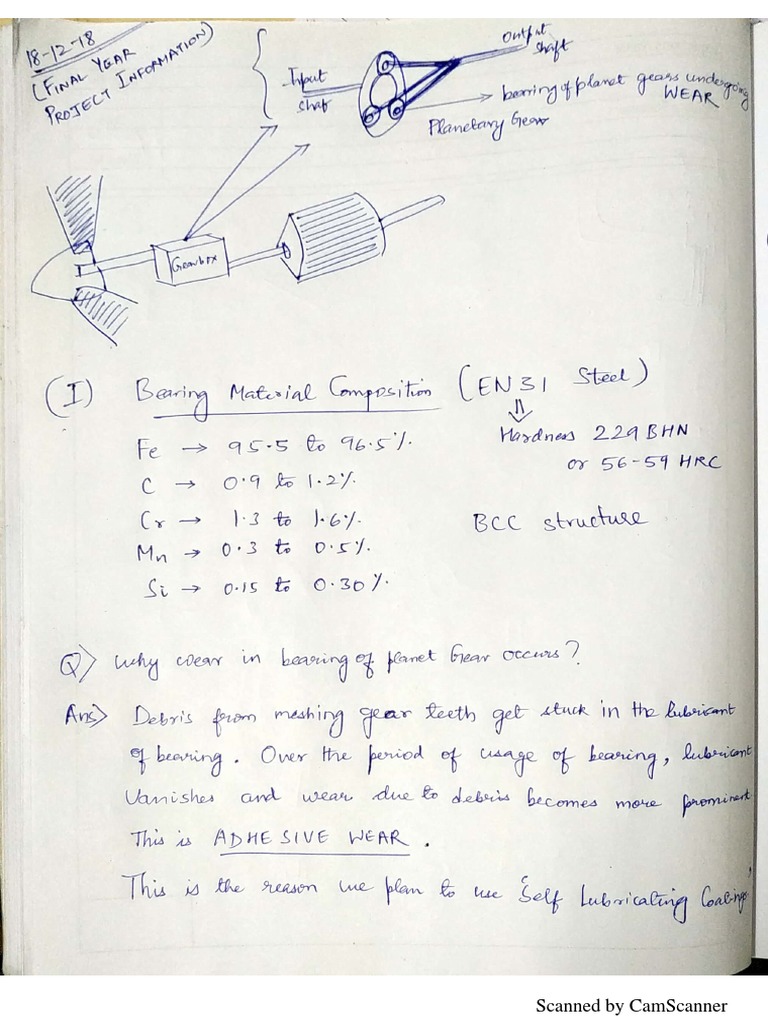 18-12-18
(FINAL YEAR
PROJECT INFORMATION)
Input
shaf
Output
shaft
bearing of planet gears undergoing
WEAR
Planetary Gear
Gearbox
(I) Bearing Material Composition (EN31 Steel)
Hardness 229 BHN
or 56-59 HRC
Fe → 95.5 to 96.5%.
C → 0.9 to 1.2%.
Cr → 1.3 to 1.6%.
BCC structure
Mn → 0.3 to 0.5%.
Si → 0.15 to 0.30%.
Q) Why wear in bearing of planet Gear occurs?
Ans) Debris from meshing gear teeth get stuck in the lubricant
of bearing. Over the period of usage of bearing, lubricant
Vanishes and wear due to debris becomes more prominent
This is ADHESIVE WEAR.
This is the reason we plan to use 'Self Lubricating Coatings'
Scanned by CamScanner